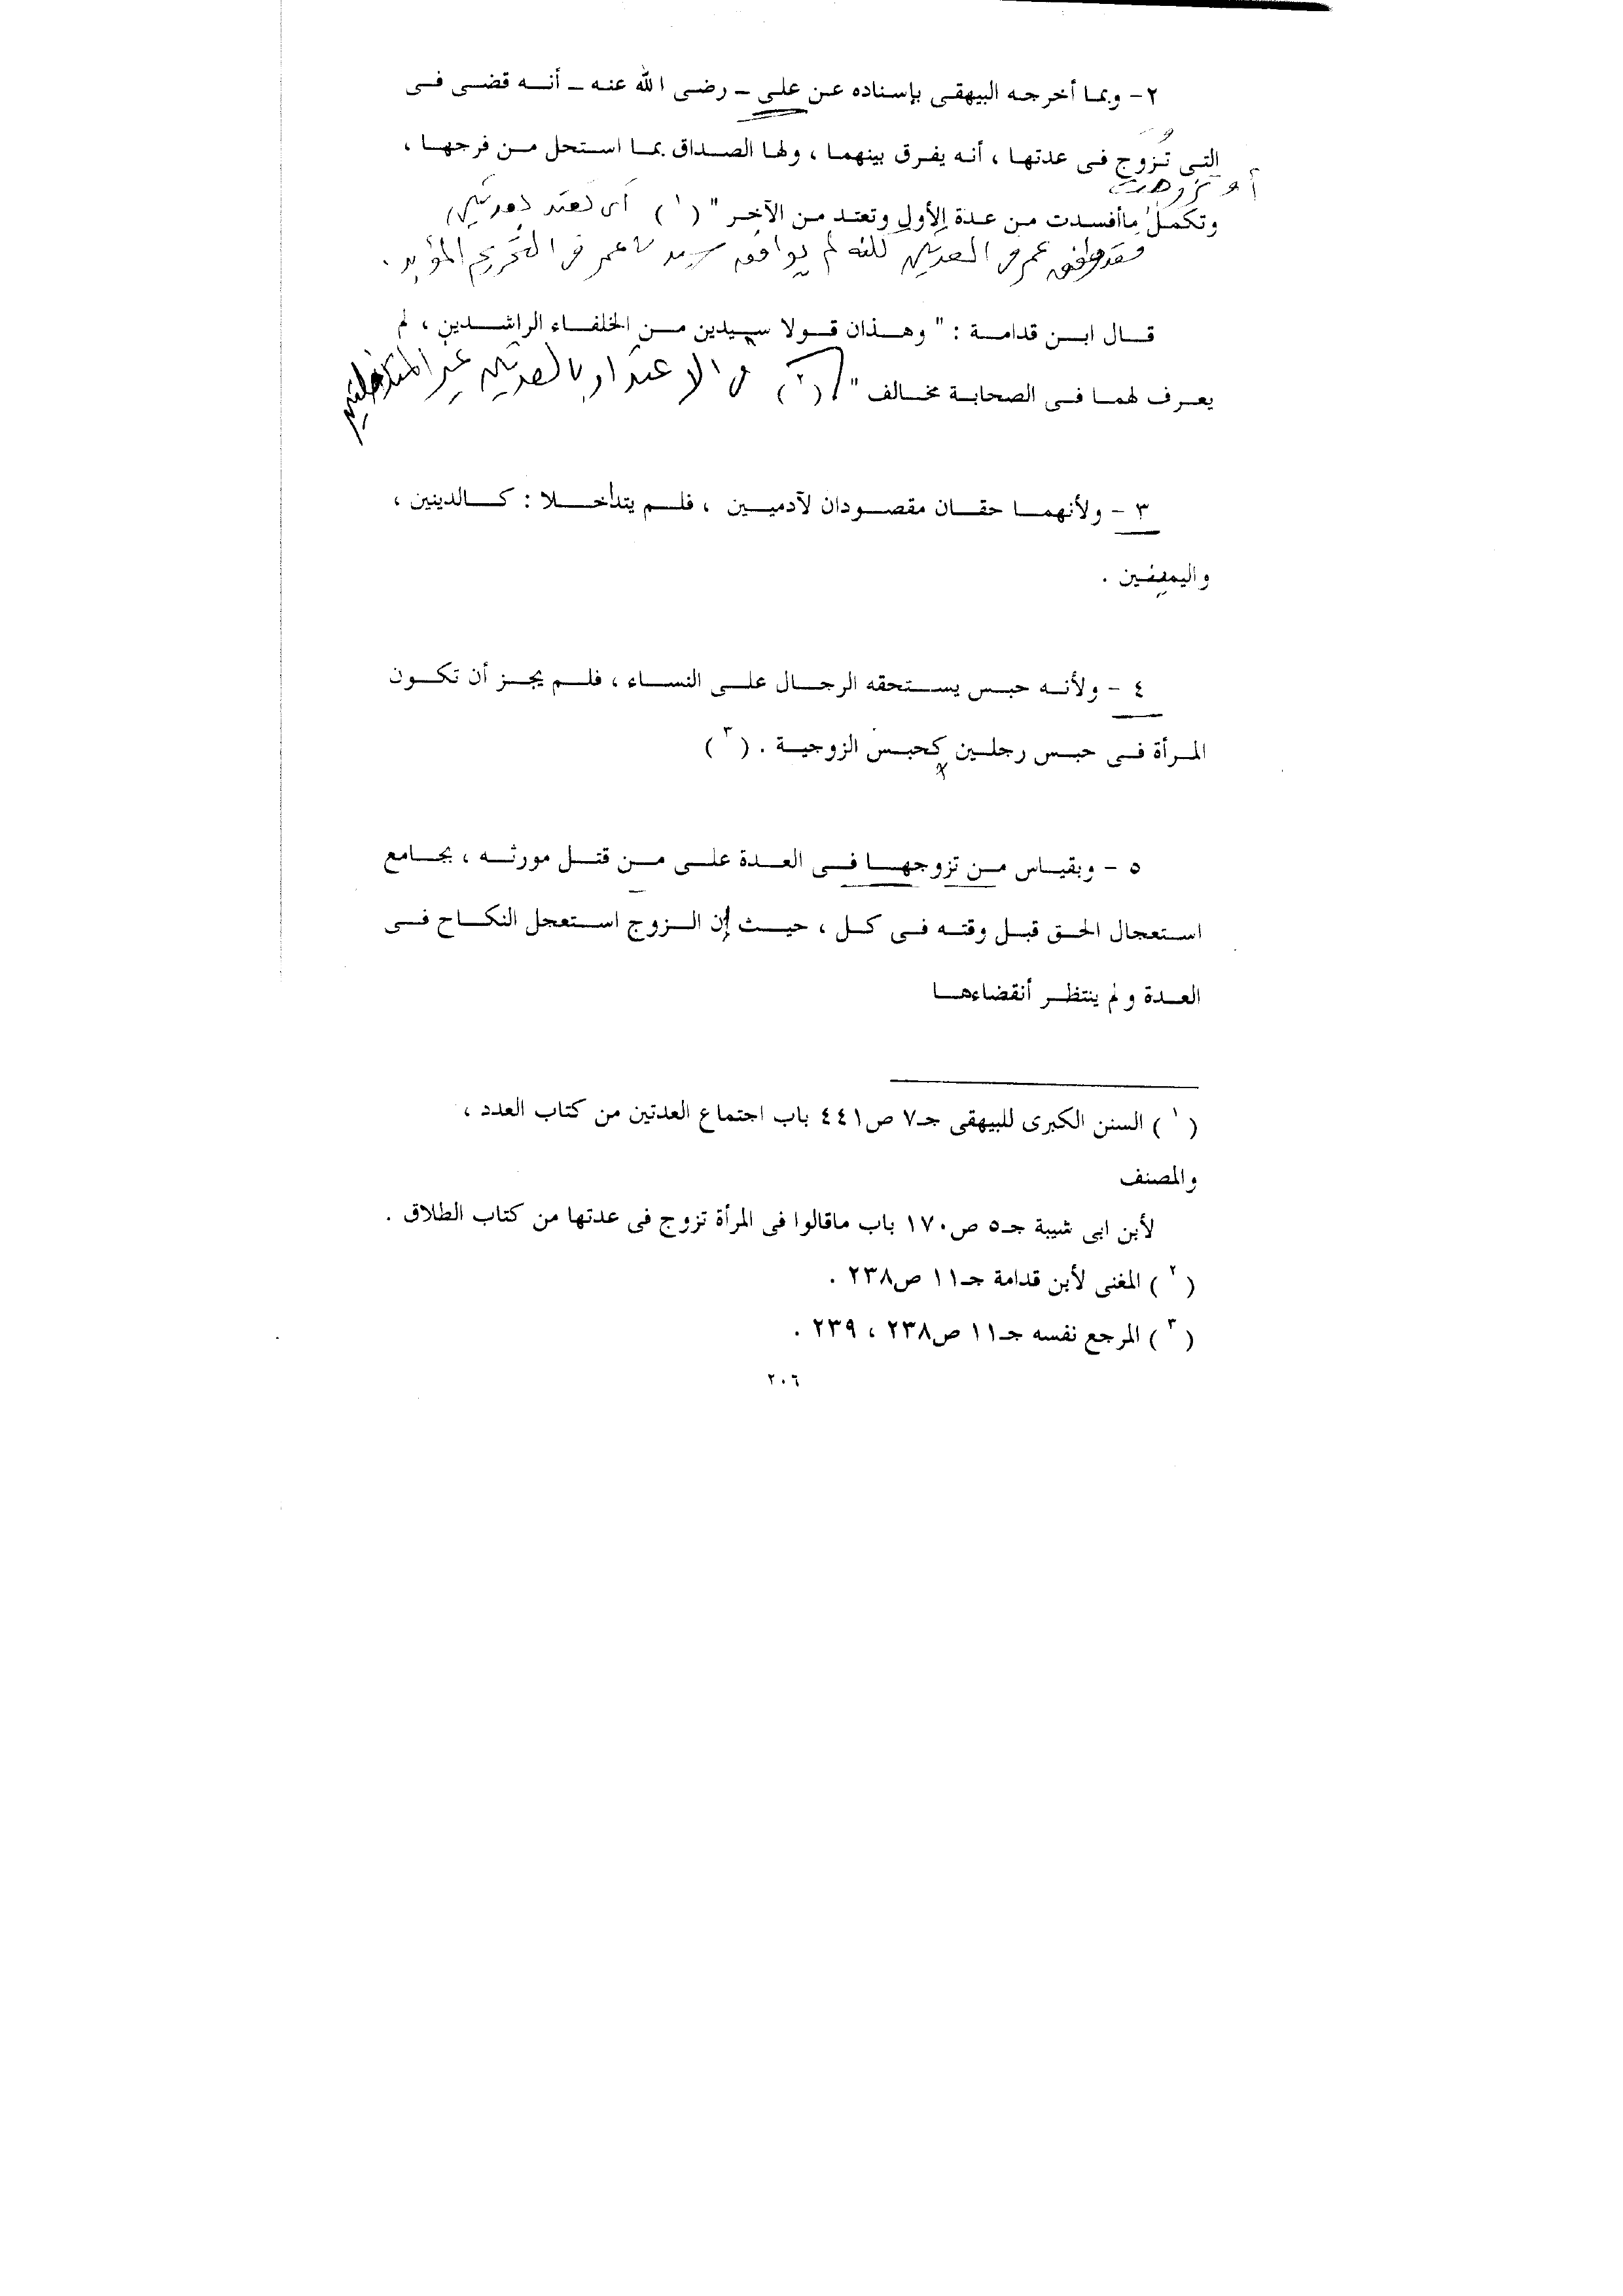 ٢- وبما أخرجه البيهقى بإسناده عن على - رضى الله عنه - أنه قضى فى
التى تزوج فى عدتها ، أنه يفرق بينهما ، ولها الصداق بما استحل من فرجها ،
أو تزوجت
وتكمل ماأفسدت من عدة الأول وتعتد من الآخر " (١) أى تعتد بعدتين
فقد وافق عمر فى العدتين لكنه لم يوافق سيدنا عمر فى التحريم المؤبد .
قال ابن قدامة : " وهذان قولا سيدين من الخلفاء الراشدين ، لم
يعرف لهما فى الصحابة مخالف " (٢) فى الاعتداد بالعدتين غير المتداخلتين
٣ - ولأنهما حقان مقصودان لآدميين ، فلم يتداخلا : كالدينين ،
واليمينين .
٤ - ولأنه حبس يستحقه الرجال على النساء ، فلم يجز أن تكون
المرأة فى حبس رجلين كحبس الزوجية . (٣)
٥ - وبقياس من تزوجها فى العدة على من قتل مورثه ، بجامع
استعجال الحق قبل وقته فى كل ، حيث إن الزوج استعجل النكاح فى
العدة ولم ينتظر أنقضاءها
(١) السنن الكبرى للبيهقى جـ٧ ص٤٤١ باب اجتماع العدتين من كتاب العدد ،
والمصنف
لأبن ابى شيبة جـ٥ ص١٧٠ باب ماقالوا فى المرأة تزوج فى عدتها من كتاب الطلاق .
(٢) المغنى لأبن قدامة جـ١١ ص٢٣٨ .
(٣) المرجع نفسه جـ١١ ص٢٣٨ ، ٢٣٩ .
٢٠٦